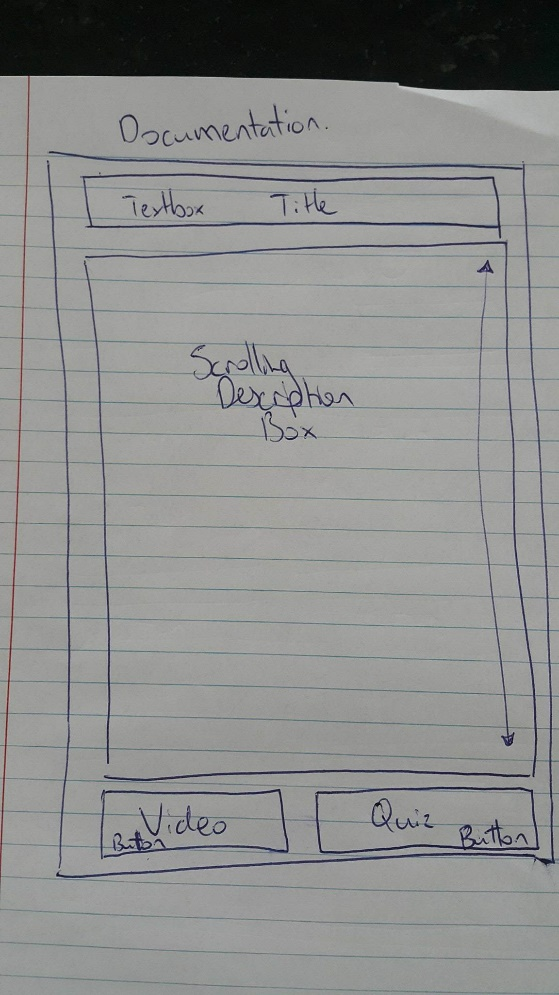 Documentation.
Textbox Title
Scrolling
Description
Box
Video
Button
Quiz
Button